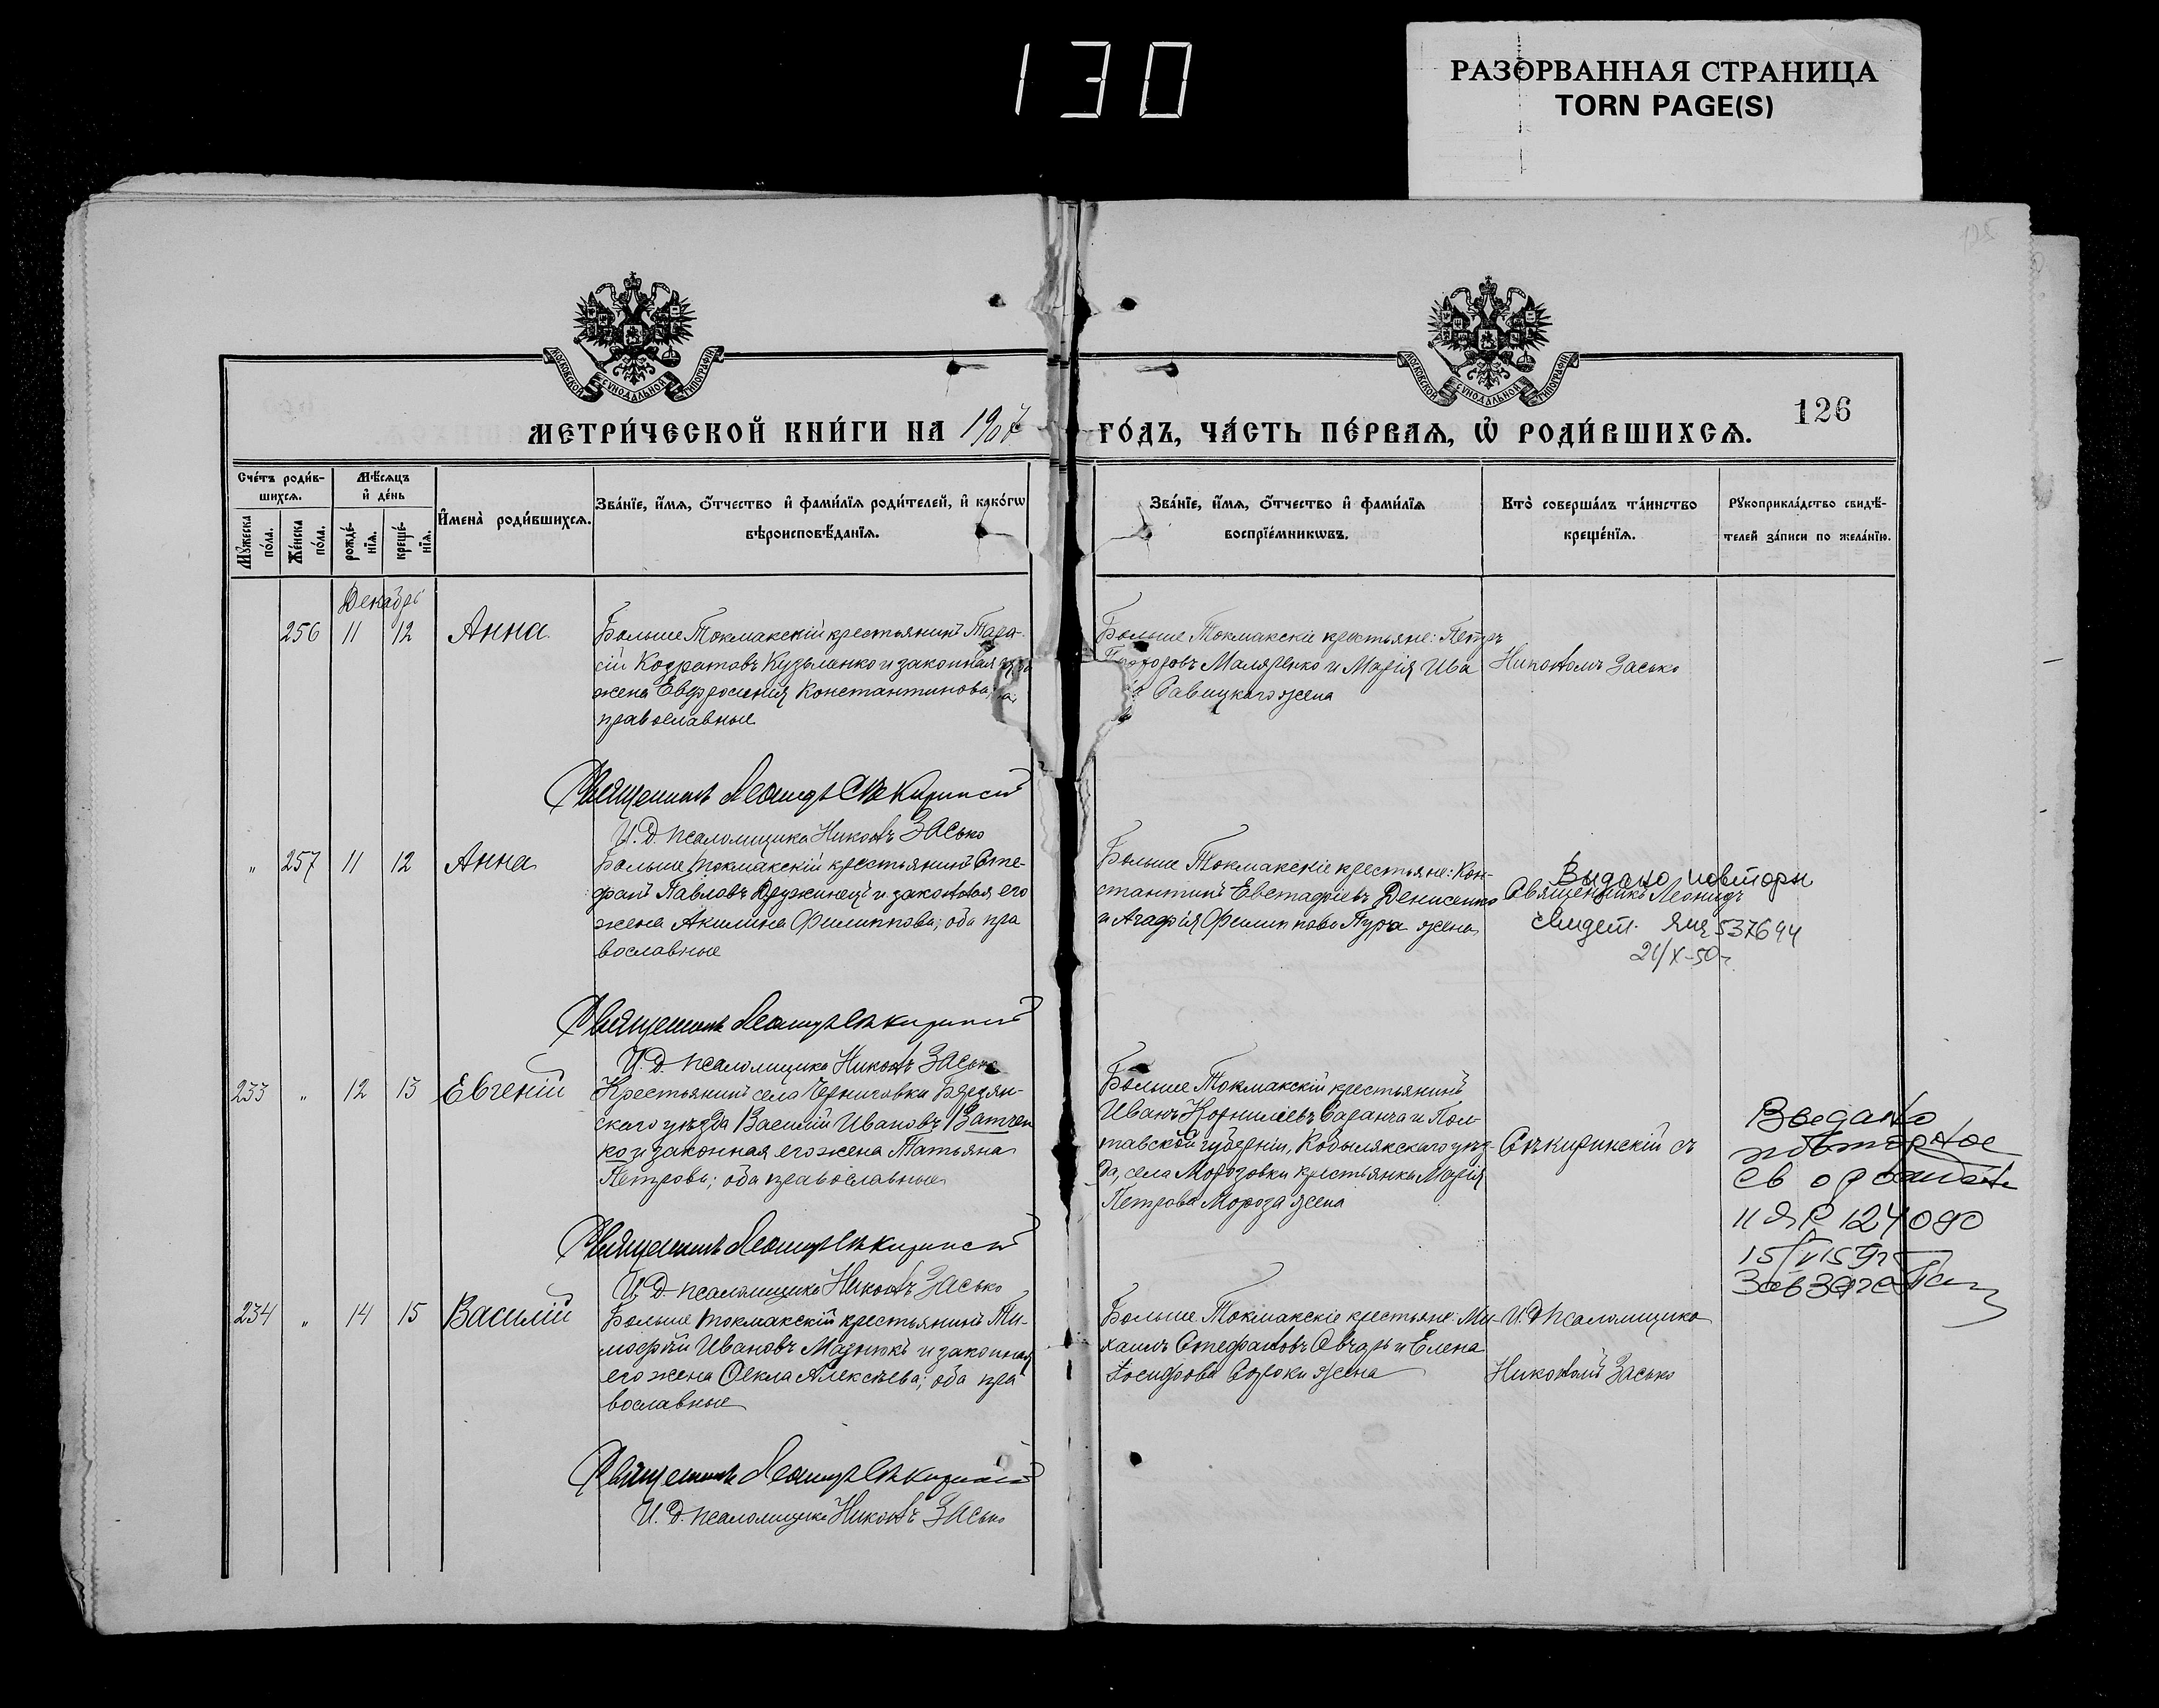 130
РАЗОРВАННАЯ СТРАНИЦА
TORN PAGE(S)
МОСКОВСКОЙ СѴНОДАЛЬНОЙ ТИПОГРАФІИ
МОСКОВСКОЙ СѴНОДАЛЬНОЙ ТИПОГРАФІИ
126
МЕТРИ́ЧЕСКОЙ КНИ́ГИ НА 1907 ГО́ДЪ, ЧА́СТЬ ПЕ́РВАѦ, Ѡ҆ РОДИ́ВШИХСѦ.
Сче́тъ роди́в-
шихсѧ.
Мѣ́сѧцъ
и҆ де́нь
Мꙋ́жеска
по́ла.
Же́нска
по́ла.
рожде́-
нїѧ.
креще́-
нїѧ.
И҆мена̀ роди́вшихсѧ.
Зва́нїе, и҆́мѧ, ѻ҆́тчество и҆ фами́лїѧ роди́телей, и҆ како́гѡ
вѣроисповѣ́данїѧ.
Зва́нїе, и҆́мѧ, ѻ҆́тчество и҆ фами́лїѧ
воспрїе́мникѡвъ.
Кто̀ соверша́лъ та́инство
креще́нїѧ.
Рꙋкоприкла́дство свидѣ́-
телей за́писи по жела́нїю.
Декабрь
256 11 12 Анна
Больше Токмакскій крестьянинъ Тара-
сій Кодратовъ Кузьменко и законная его
жена Евфросинія Константинова;
православные
Больше Токмакскіе крестьяне: Петръ
Маляренко и Марія Ива
Савицкаго жена
Засько
Священникъ Леонидъ Сѣкиринскій
И. Д. псаломщика Никонъ Засько
" 257 11 12 Анна
Больше Токмакскій крестьянинъ Сте-
фанъ Павловъ Дружинецъ и законная его
жена Акилина Филиппова; оба пра
вославные
Больше Токмакскіе крестьяне: Кон-
стантинъ Евстафіевъ Денисенко
и Агафія Филиппова жена
Священникъ Леонидъ
Выдано повторн
свидет. 537694
21/X-50 г.
Священникъ Леонидъ Сѣкиринскій
И. Д. псаломщика Никонъ Засько
233 " 12 13 Евгеній
Крестьянинъ села Черниговки Бердян-
скаго уѣзда Василій Ивановъ Ватчен
ко и законная его жена Татьяна
Петрова; оба православные
Больше Токмакскій крестьянинъ
Иванъ Корниліевъ Саранча и Пол-
тавской губерніи, Кобылякскаго уѣз-
да, села Морозовки крестьянка Марія
Петрова Мороза жена
Сѣкиринскій съ
Выдано
повторное
св о рожд
124090
Священникъ Леонидъ Сѣкиринскій
И. Д. псаломщика Никонъ Засько
234 " 14 15 Василій
Больше Токмакскій крестьянинъ Ти-
мофей Ивановъ и законная
его жена Ѳекла Алексѣева; оба пра
вославные
Больше Токмакскіе крестьяне: Ми-
хаилъ Стефановъ Овчаръ и Елена
Іосифова Сороки жена
И. Д. Псаломщика
Засько
Священникъ Леонидъ Сѣкиринскій
И. Д. псаломщика Никонъ Засько